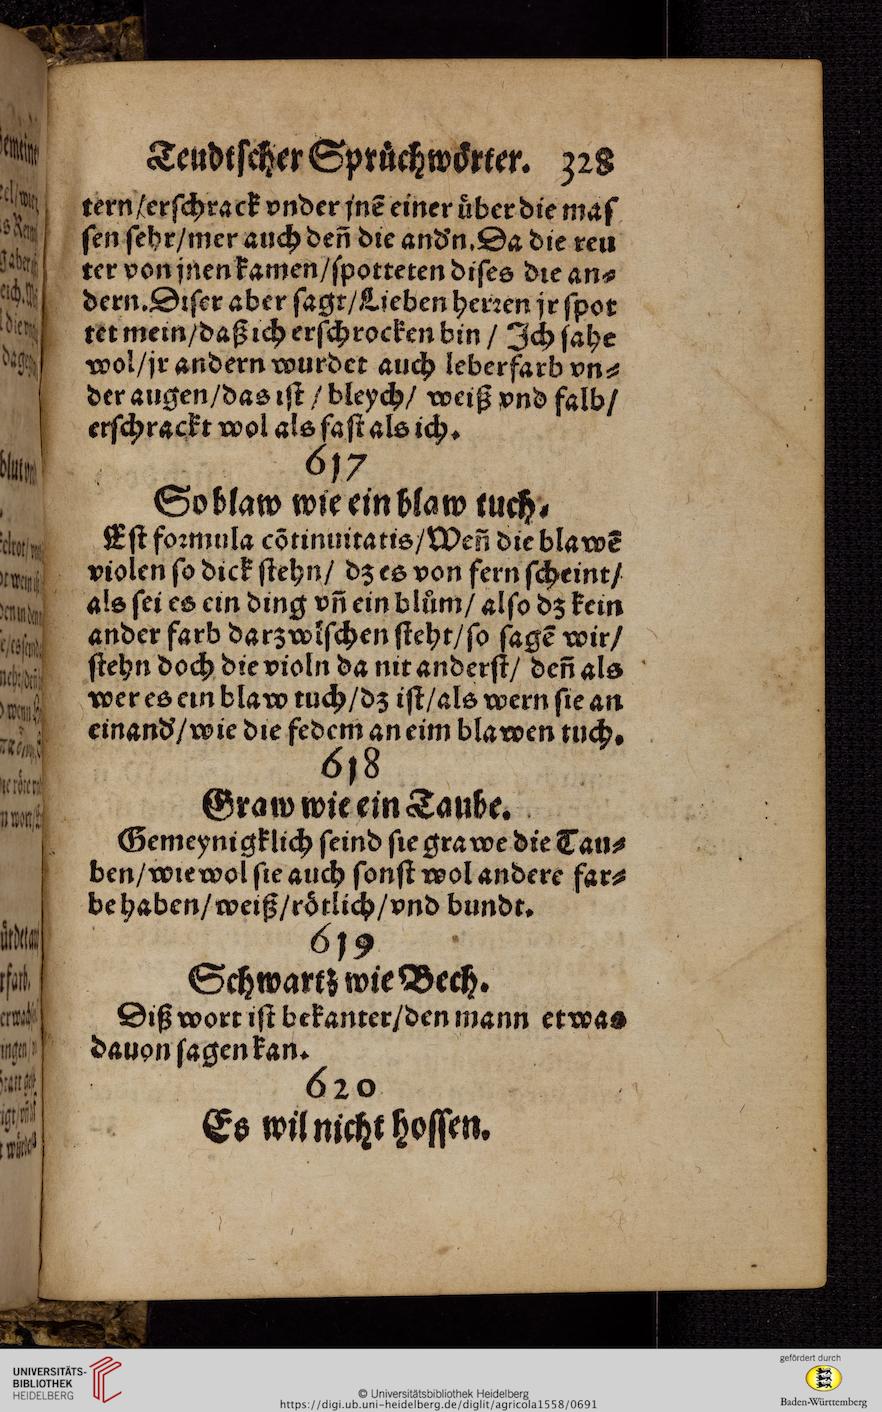 Teudtſcher Sprüchwörter. 328
tern/erſchrack vnder jnẽ einer über die maſ
ſen ſehr/mer auch deñ die andn̄. Da die reu
ter von jnen kamen/ſpotteten diſes die an⸗
dern. Diſer aber ſagt/Lieben herꝛen jr ſpot
tet mein/daß ich erſchrocken bin / Ich ſahe
wol/jr andern wurdet auch leberfarb vn⸗
der augen/das iſt / bleych/ weiß vnd falb/
erſchrackt wol als faſt als ich.
617
So blaw wie ein blaw tuch.
Eſt foꝛmula cõtinuitatis/Weñ die blawẽ
violen ſo dick ſtehn/ dz es von fern ſcheint/
als ſei es ein ding vñ ein blům/ alſo dz kein
ander farb darzwiſchen ſteht/ſo ſagẽ wir/
ſtehn doch die violn da nit anderſt/ deñ als
wer es ein blaw tuch/dz iſt/als wern ſie an
einand'/wie die fedem an eim blawen tuch.
618
Graw wie ein Taube.
Gemeynigklich ſeind ſie grawe die Tau⸗
ben/wiewol ſie auch ſonſt wol andere far⸗
be haben/weiß/rötlich/vnd bundt.
619
Schwartz wie Bech.
Diß wort iſt bekanter/den mann etwas
dauon ſagen kan.
620
Es wil nicht hoſſen.
UNIVERSITÄTS-
BIBLIOTHEK
HEIDELBERG
© Universitätsbibliothek Heidelberg
https://digi.ub.uni-heidelberg.de/diglit/agricola1558/0691
gefördert durch
Baden-Württemberg